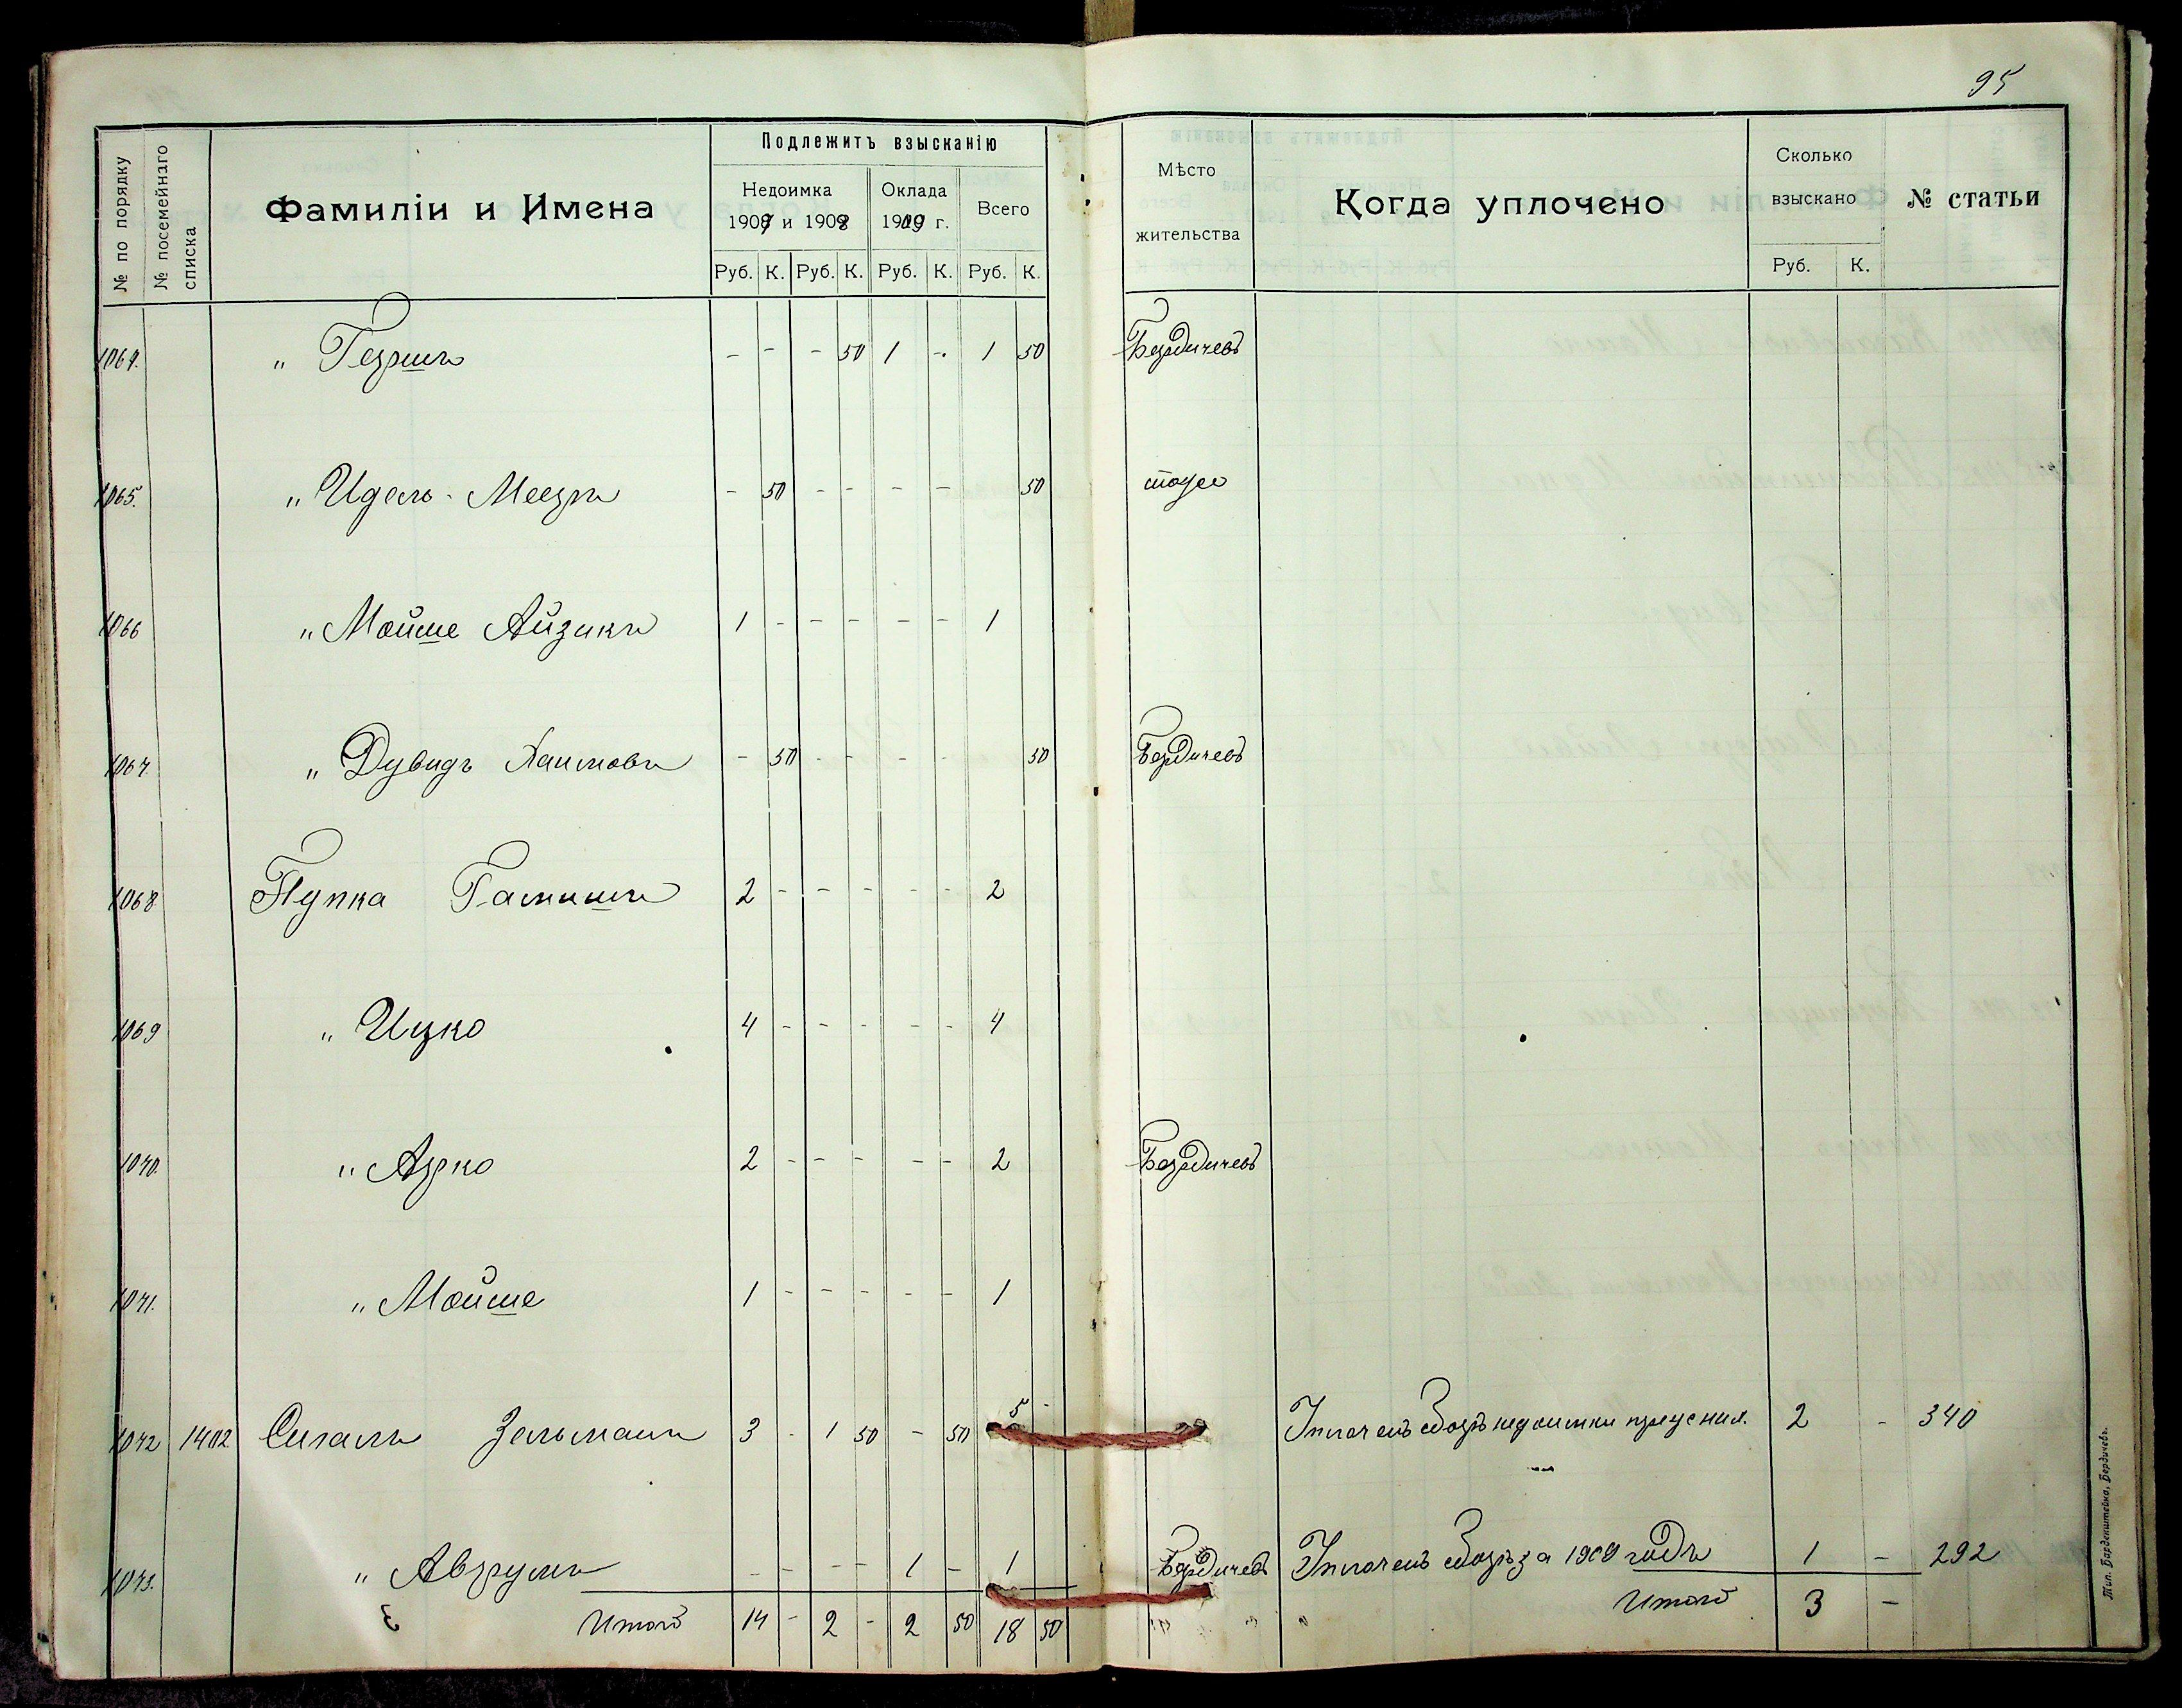 95
Подлежитъ взысканію
№ по порядку
№ посемейнаго списка
Фамиліи и Имена
Недоимка 1907 и 1908
Оклада 1909 г.
Всего
Руб. К. Руб. К. Руб. К. Руб. К.
Мѣсто жительства
Когда уплочено
Сколько взыскано
Руб. К.
№ статьи
1064. " Гершъ - - - 50 1 - 1 50 Бердичевъ
1065. " Идель - Мееръ - 50 - - - - 50 тоже
1066 " Мойше Айзикъ 1 - - - - - 1
1067 " Дувидъ Хаимовъ - 50 - - - - 50 Бердичевъ
1068 Пупка Гамшъ 2 - - - - - 2
1069 " Ицко 4 - - - - - 4
1070. " Арко 2 - - - - - 2 Бердичевъ
1071. " Мойше 1 - - - - - 1
1072 1402 Сигалъ Зельманъ 3 - 1 50 - 50 5 - Уплоченъ сборъ недоимки 2 - 340
1073. " Аврумъ - - - - 1 - 1 Бердичевъ Уплоченъ сборъ за 1909 годъ 1 - 292
Итого 14 - 2 - 2 50 18 50 Итого 3 -
Тип. Барденштейна, Бердичевъ.